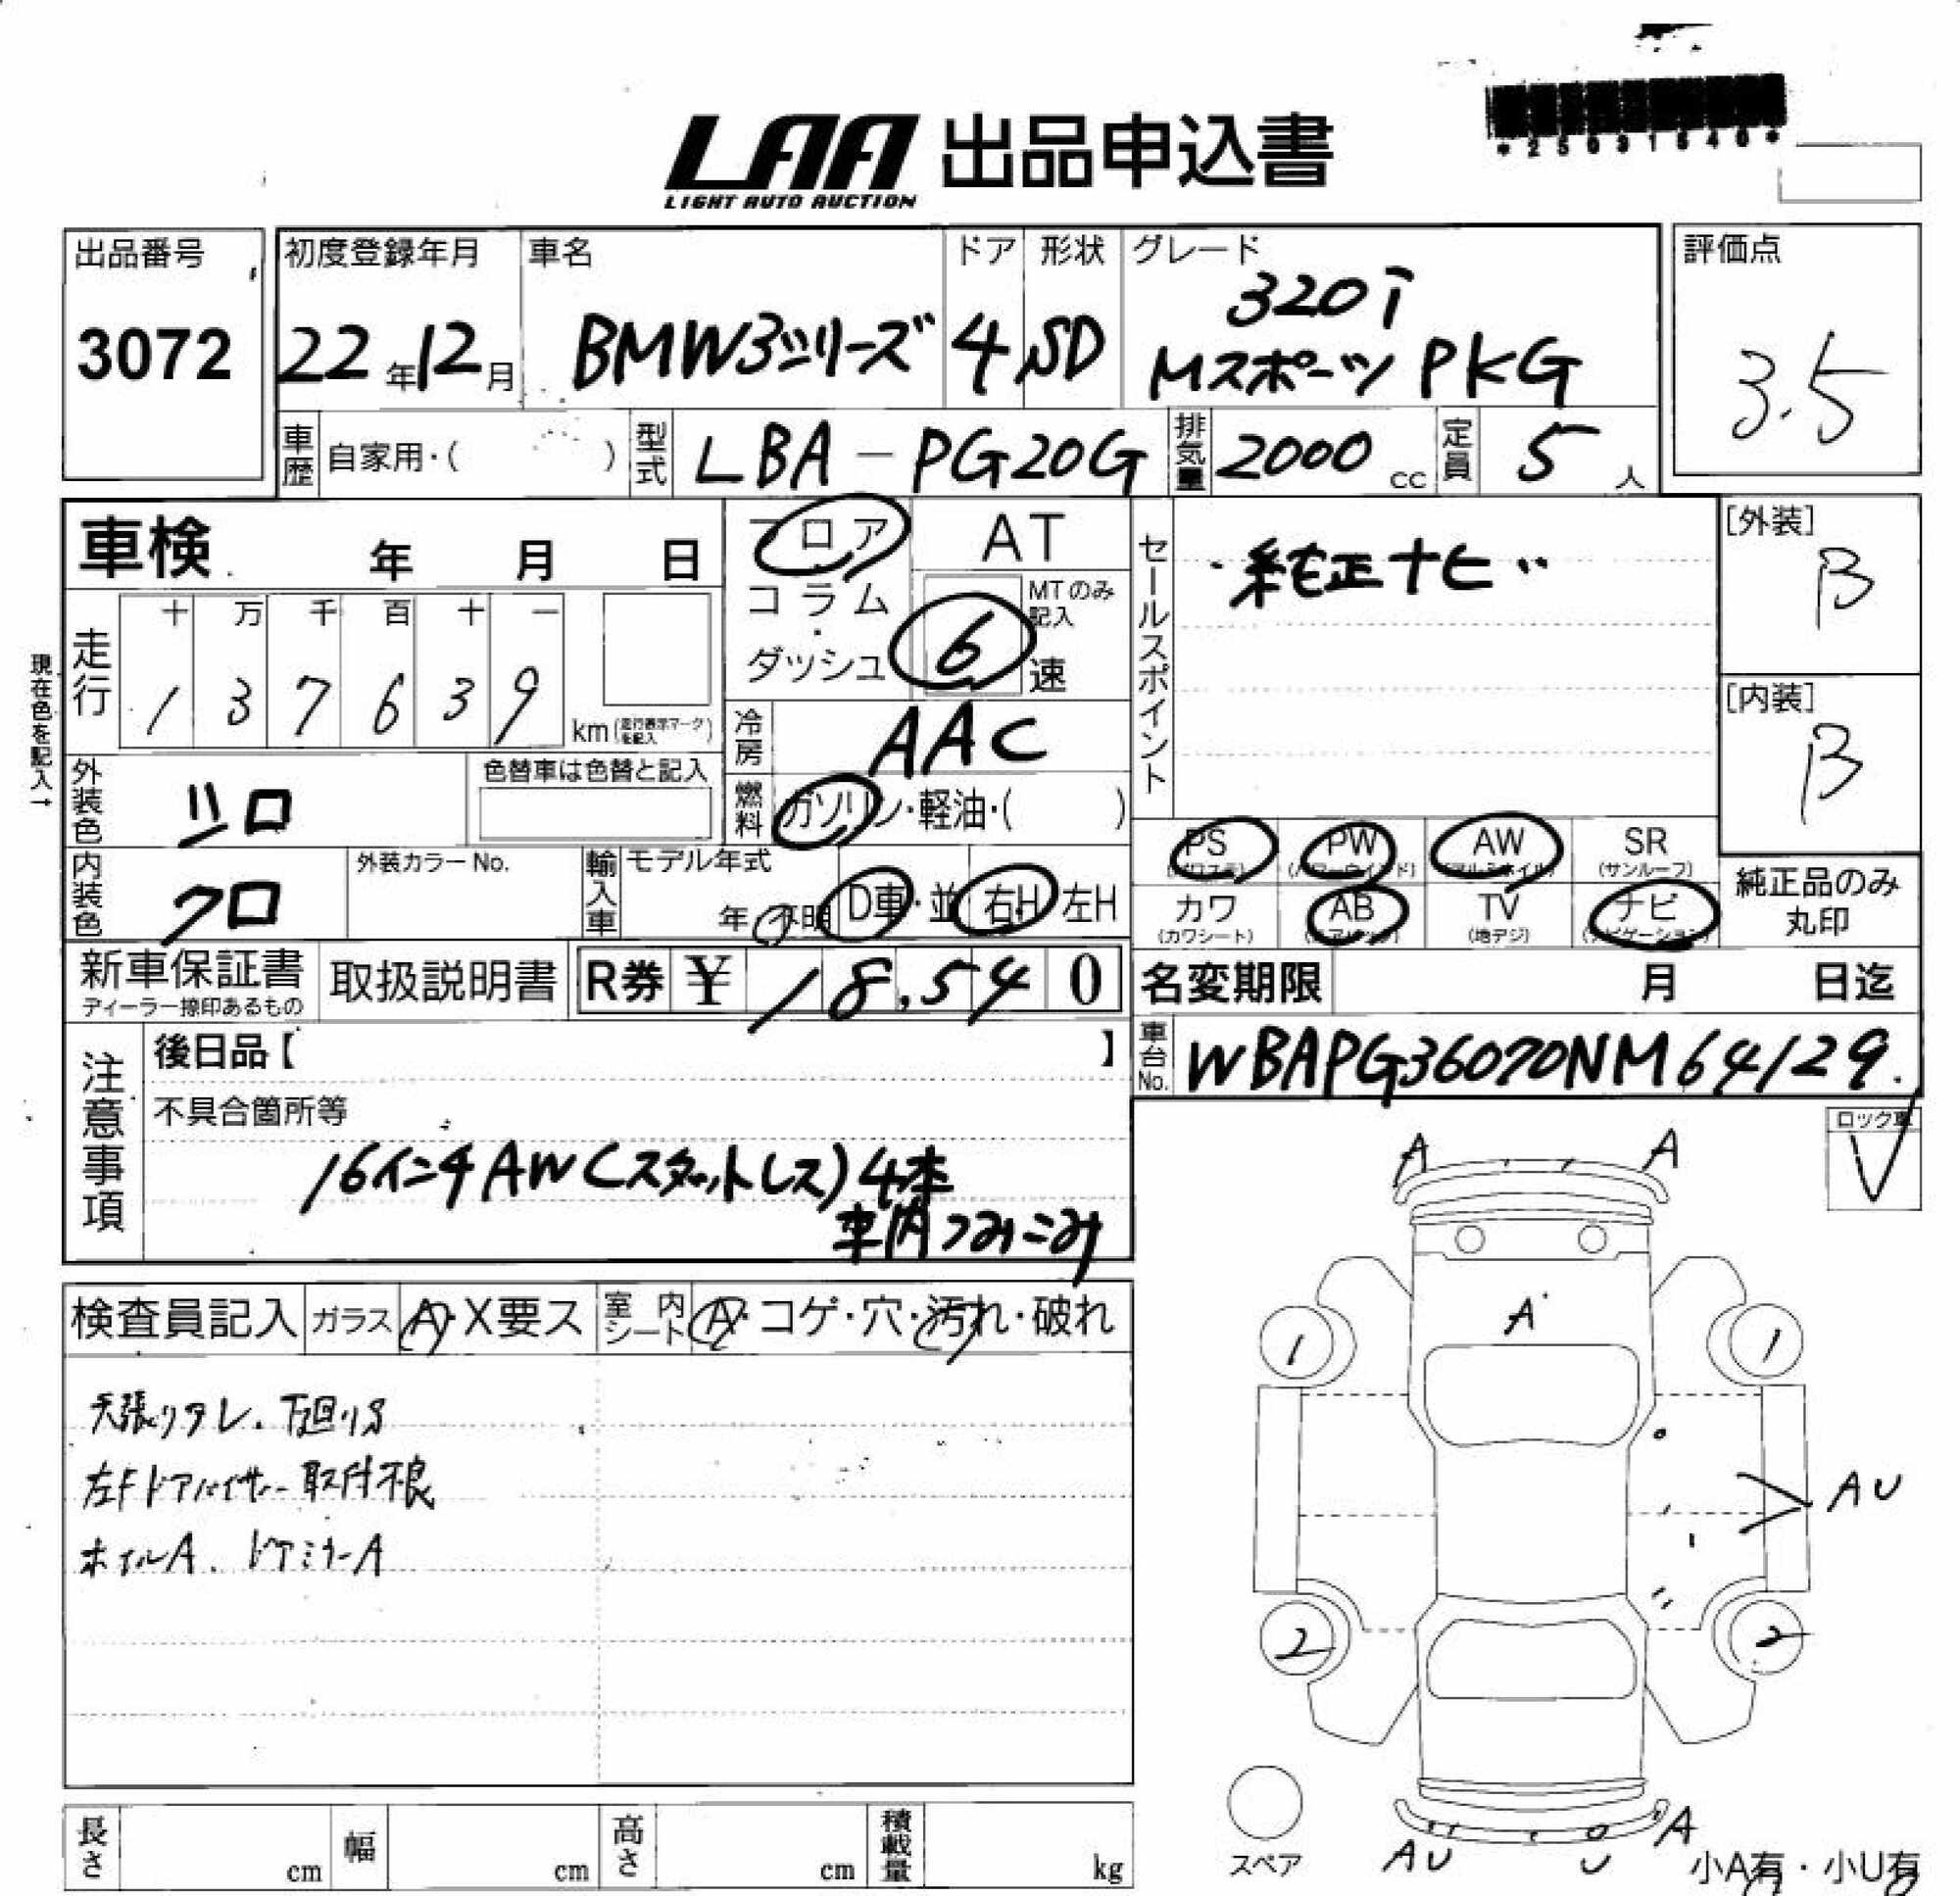 *25031540*
LAA 出品申込書
LIGHT AUTO AUCTION
出品番号 初度登録年月 車名 ドア 形状 グレード 評価点
3072 22年12月 BMW3シリーズ 4 SD 320i
Mスポーツ PKG 3.5
車歴 自家用・( ) 型式 LBA-PG20G 排気量 2000 cc 定員 5 人
車検 年 月 日 フロア AT セールスポイント ・純正ナビ [外装] B
コラム・ダッシュ 6 MTのみ記入 速
現在色を記入→
走行 十 万 千 百 十 一
1 3 7 6 3 9 km (走行表示マークを記入) [内装] B
冷房 AAC
外装色 シロ 色替車は色替と記入 燃料 ガソリン・軽油・( )
PS (パワステ) PW (パワーウインド) AW (アルミホイル) SR (サンルーフ)
内装色 クロ 外装カラーNo. 輸入車 モデル年式 年・不明 D車・並 右H・左H
カワ (カワシート) AB (エアバック) TV (地デジ) ナビ (ナビゲーション) 純正品のみ丸印
新車保証書 ディーラー捺印あるもの 取扱説明書 R券 ¥ 18,540 名変期限 月 日迄
注意事項 後日品【 】 車台No. WBAPG36070NM64129.
不具合箇所等 ロック車 V
16インチAW(スタットレス)4本
車内つみこみ
検査員記入 ガラス A・X要ス 室内シート A・コゲ・穴・汚れ・破れ
天張りタレ、下廻りS
左Fドアバイザー取付不良
ホイルA、ドアミラーA
A A
A
1 1
AU
2 2
スペア AU U A 小A有・小U有
長さ cm 幅 cm 高さ cm 積載量 kg